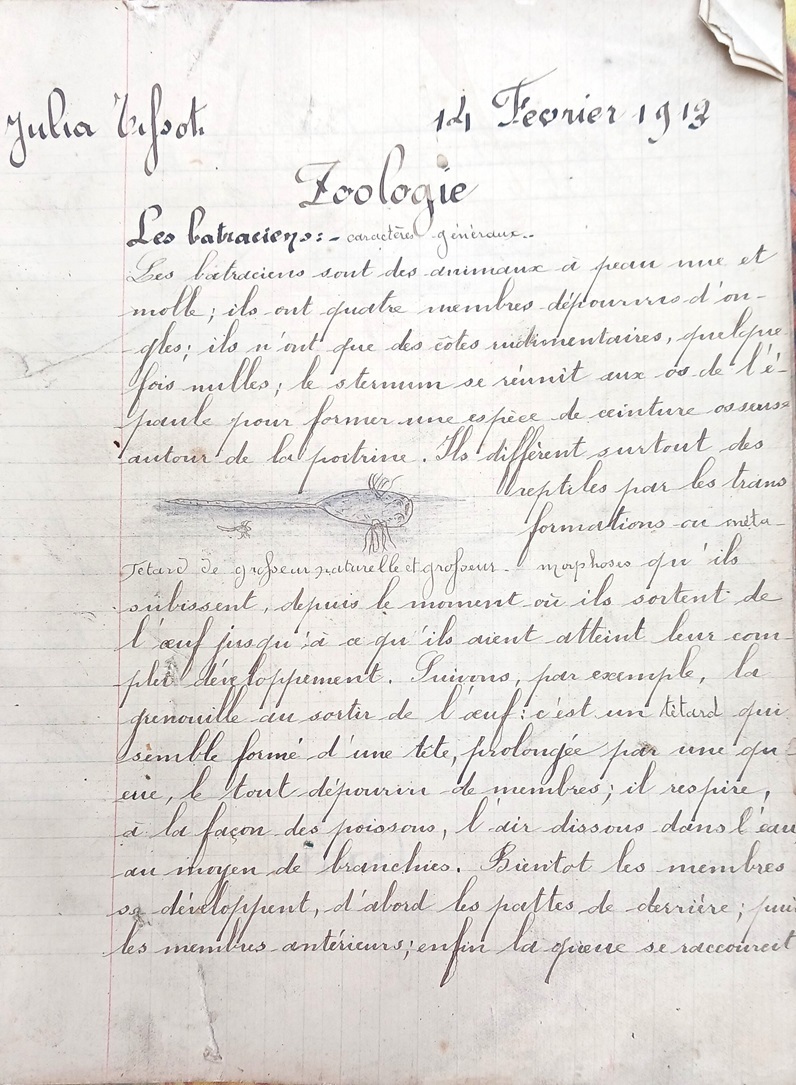 Julia Tissot
14 Fevrier 1913
Zoologie
Les batraciens:- caractères généraux.-
Les batraciens sont des animaux à peau nue et
molle; ils ont quatre membres dépourvus d'on-
gles; ils n'ont que des côtes rudimentaires, quelque
fois nulles; le sternum se réunit aux os de l'é-
paule pour former une espèce de ceinture osseuse
autour de la poitrine. Ils diffèrent surtout des
reptiles par les trans
formations ou méta-
Tetard de grosseur naturelle et grosseur - morphoses qu'ils
subissent, depuis le moment où ils sortent de
l'œuf jusqu'à ce qu'ils aient atteint leur com-
plet développement. Suivons, par exemple, la
grenouille au sortir de l'œuf: c'est un tétard qui
semble formé d'une tête, prolongée par une qu
eue, le tout dépourvu de membres; il respire,
à la façon des poissons, l'air dissous dans l'eau
au moyen de branchies. Bientot les membres
se développent, d'abord les pattes de derrière; puis
les membres antérieurs; enfin la queue se raccourcit